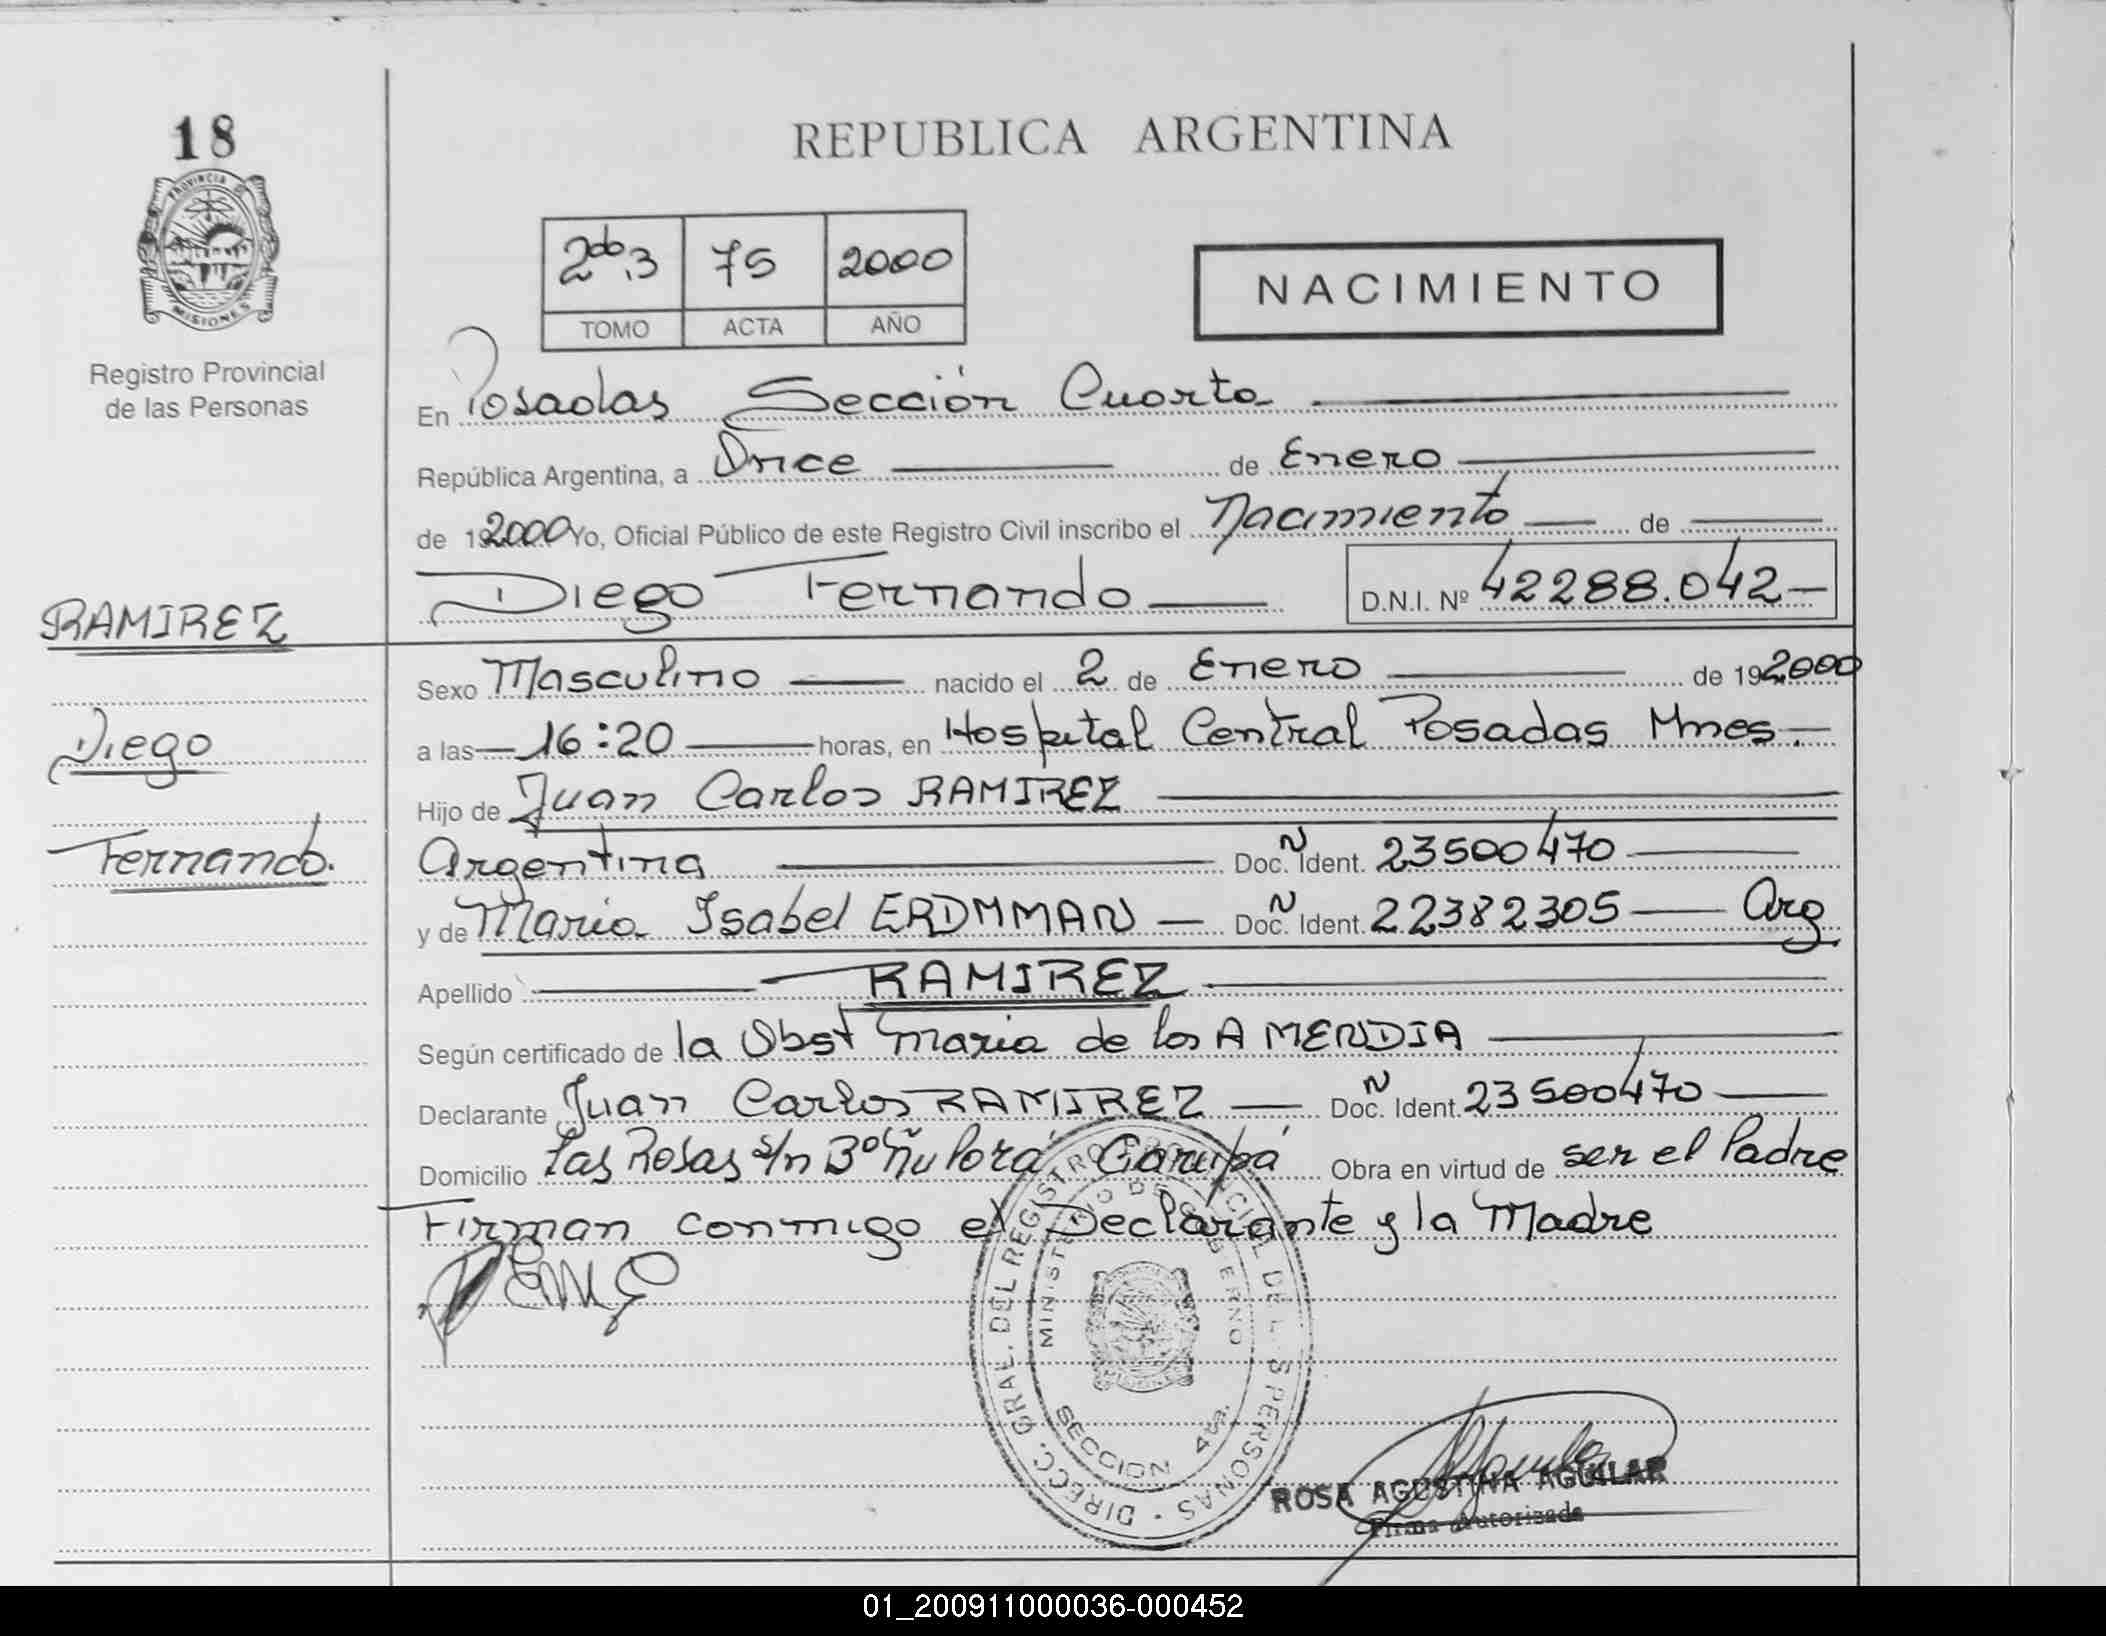 18
PROVINCIA DE
MISIONES
Registro Provincial
de las Personas
REPUBLICA ARGENTINA
2do,3 75 2000
TOMO ACTA AÑO
NACIMIENTO
En Posadas Sección Cuarta
República Argentina, a Once de Enero
de 192000 Yo, Oficial Público de este Registro Civil inscribo el Nacimiento de
Diego Fernando D.N.I. Nº 42288.042
RAMIREZ
Diego
Fernando.
Sexo Masculino nacido el 2 de Enero de 192000
a las 16:20 horas, en Hospital Central Posadas Mnes.
Hijo de Juan Carlos RAMIREZ
Argentina Doc. Ñ Ident. 23500470
y de Maria Isabel ERDMMAN Doc. Ñ Ident. 22382305 Arg
Apellido RAMIREZ
Según certificado de la Obst Maria de los A MENDIA
Declarante Juan Carlos RAMIREZ Doc. Ñ Ident. 23500470
Domicilio Las Rosas s/n Bº Ñu Porá Garupá Obra en virtud de ser el Padre
Firman conmigo el Declarante y la Madre
DIRECC. GRAL. DEL REGISTRO PROVINCIAL DE L. SPERSONAS
MINISTERIO DE GOBIERNO
SECCION 4ta.
ROSA AGUSTINA AGUILAR
Firma Autorizada
01_200911000036-000452